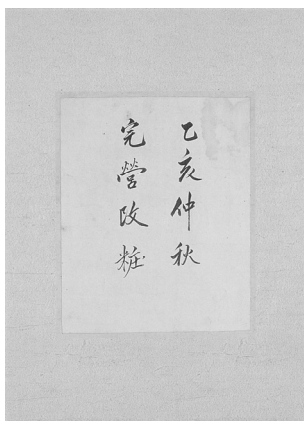 乙亥仲秋
完營改粧